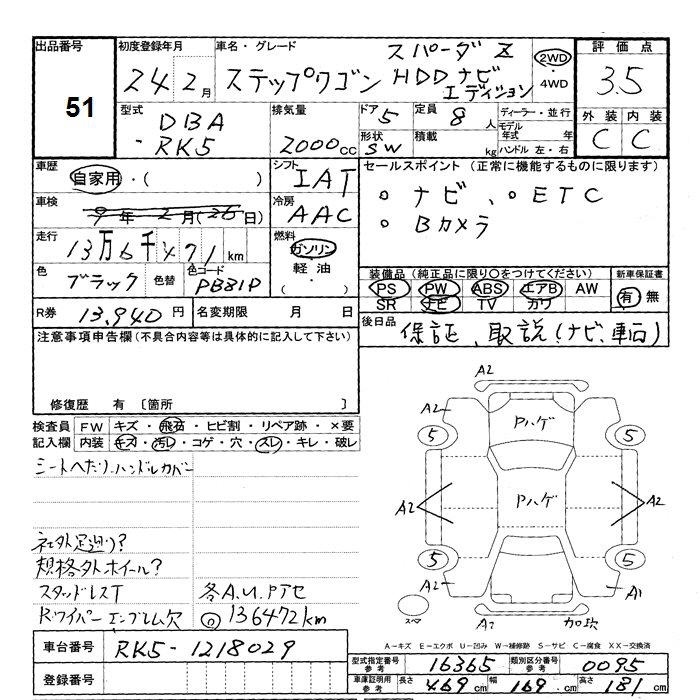 出品番号
51
初度登録年月
24 2月
車名・グレード
ステップワゴン スパーダ Z
HDD ナビ
エディション
2WD
・
4WD
評価点
3.5
外装 内装
C C
型式
DBA
- RK5
排気量
2000cc
ドア
5
定員
8人
形状
SW
積載
kg
ディーラー・並行
モデル年式 年
ハンドル 左・右
車歴
自家用・( )
シフト
IAT
車検
9年2月(26日)
冷房
AAC
走行
13万6千471km
燃料
ガソリン
軽油
・
( )
色
ブラック
色替
色コード
PB81P
セールスポイント (正常に機能するものに限ります)
○ ナビ、○ ETC
○ Bカメラ
装備品 (純正品に限り○をつけてください)
PS PW ABS エアB AW
SR ナビ TV カワ
新車保証書
有 無
R券 13,940円
名変期限 月 日
後日品
保証、取説(ナビ、車両)
注意事項申告欄 (不具合内容等は具体的に記入して下さい)
修復歴 有 〔箇所 〕
検査員記入欄
FW キズ・飛石・ヒビ割・リペア跡・×要
内装 キズ・汚レ・コゲ・穴・スレ・キレ・破レ
シートヘたり、ハンドルカバー
社外足廻り?
規格外ホイール?
スタッドレスT
Rワイパー エンブレム欠
各A.U.Pテセ
◎ 136472km
A2
A2
A2
Pハゲ
5
5
A2
A2
Pハゲ
5
5
A2
A1
A2
加吹
スマ
A-キズ E-エクボ U-凹み W-補修跡 S-サビ C-腐食 XX-交換済
車台番号
RK5-1218029
登録番号
型式指定番号
参考
16365
類別区分番号
参考
0095
車庫証明用
参考
長さ 469cm
幅 169cm
高さ 181cm